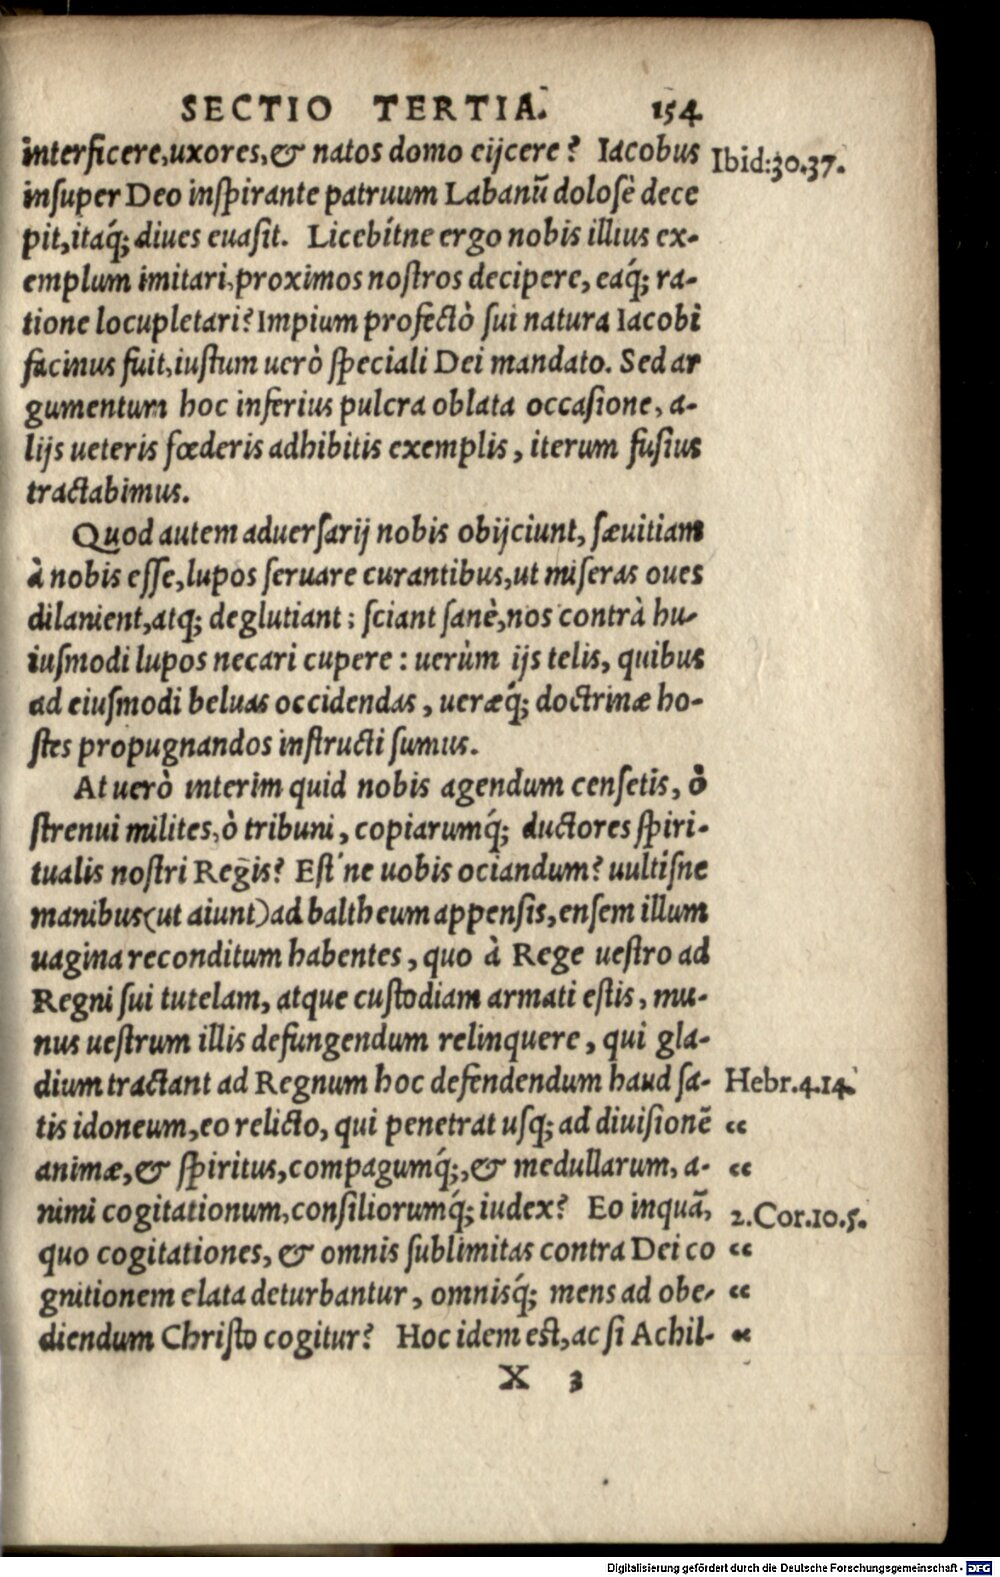 SECTIO TERTIA. 154
interficere, uxores, & natos domo eijcere? Iacobus
Ibid:30.37.
insuper Deo inspirante patruum Labanũ dolosè dece
pit, itaq́; diues euasit. Licebítne ergo nobis illius ex-
emplum imitari, proximos nostros decipere, eaq́; ra-
tione locupletari? Impium profectò sui natura Iacobi
facinus fuit, iustum uerò speciali Dei mandato. Sed ar
gumentum hoc inferius pulcra oblata occasione, a-
lijs ueteris fœderis adhibitis exemplis, iterum fusius
tractabimus.
Quod autem aduersarij nobis obijciunt, sæuitiam
à nobis esse, lupos seruare curantibus, ut miseras oues
dilanient, atq; deglutiant: sciant sanè, nos contrà hu-
iusmodi lupos necari cupere: uerùm ijs telis, quibus
ad eiusmodi beluas occidendas, ueræq́; doctrinæ ho-
stes propugnandos instructi sumus.
At uerò interim quid nobis agendum censetis, ò
strenui milites, ò tribuni, copiarumq́; ductores spiri-
tualis nostri Regis? Est'ne uobis ociandum? uultisne
manibus (ut aiunt) ad baltheum appensis, ensem illum
uagina reconditum habentes, quo à Rege uestro ad
Regni sui tutelam, atque custodiam armati estis, mu-
nus uestrum illis defungendum relinquere, qui gla-
dium tractant ad Regnum hoc defendendum haud sa-
Hebr.4.14.
tis idoneum, eo relicto, qui penetrat usq; ad diuisionẽ
“
animæ, & spiritus, compagumq́;, & medullarum, a-
“
nimi cogitationum, consiliorumq́; iudex? Eo inquã,
2.Cor.10.5.
quo cogitationes, & omnis sublimitas contra Dei co
“
gnitionem elata deturbantur, omnisq́; mens ad obe-
“
diendum Christo cogitur? Hoc idem est, ac si Achil-
“
X 3
Digitalisierung gefördert durch die Deutsche Forschungsgemeinschaft - DFG